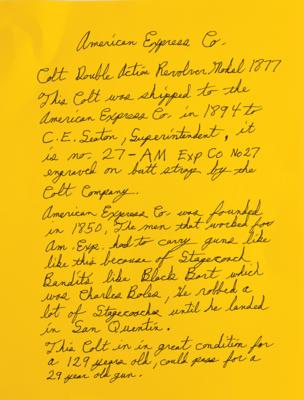 American Express Co.
Colt Double Action Revolver, Model 1877
This Colt was shipped to the
American Express Co. in 1894 to
C.E. Seaton, Superintendent, it
is no. 27-AM EXP CO No27
engraved on butt strap by the
Colt Company.
American Express Co. was founded
in 1850, The men that worked for
Am. Exp. had to carry guns like
like this because of Stagecoach
Bandits like Black Bart which
was Charles Boles, He robbed a
lot of Stagecoachs until he landed
in San Quentin.
This Colt in in great condition for
a 129 years old, could pass for a
29 year old gun.